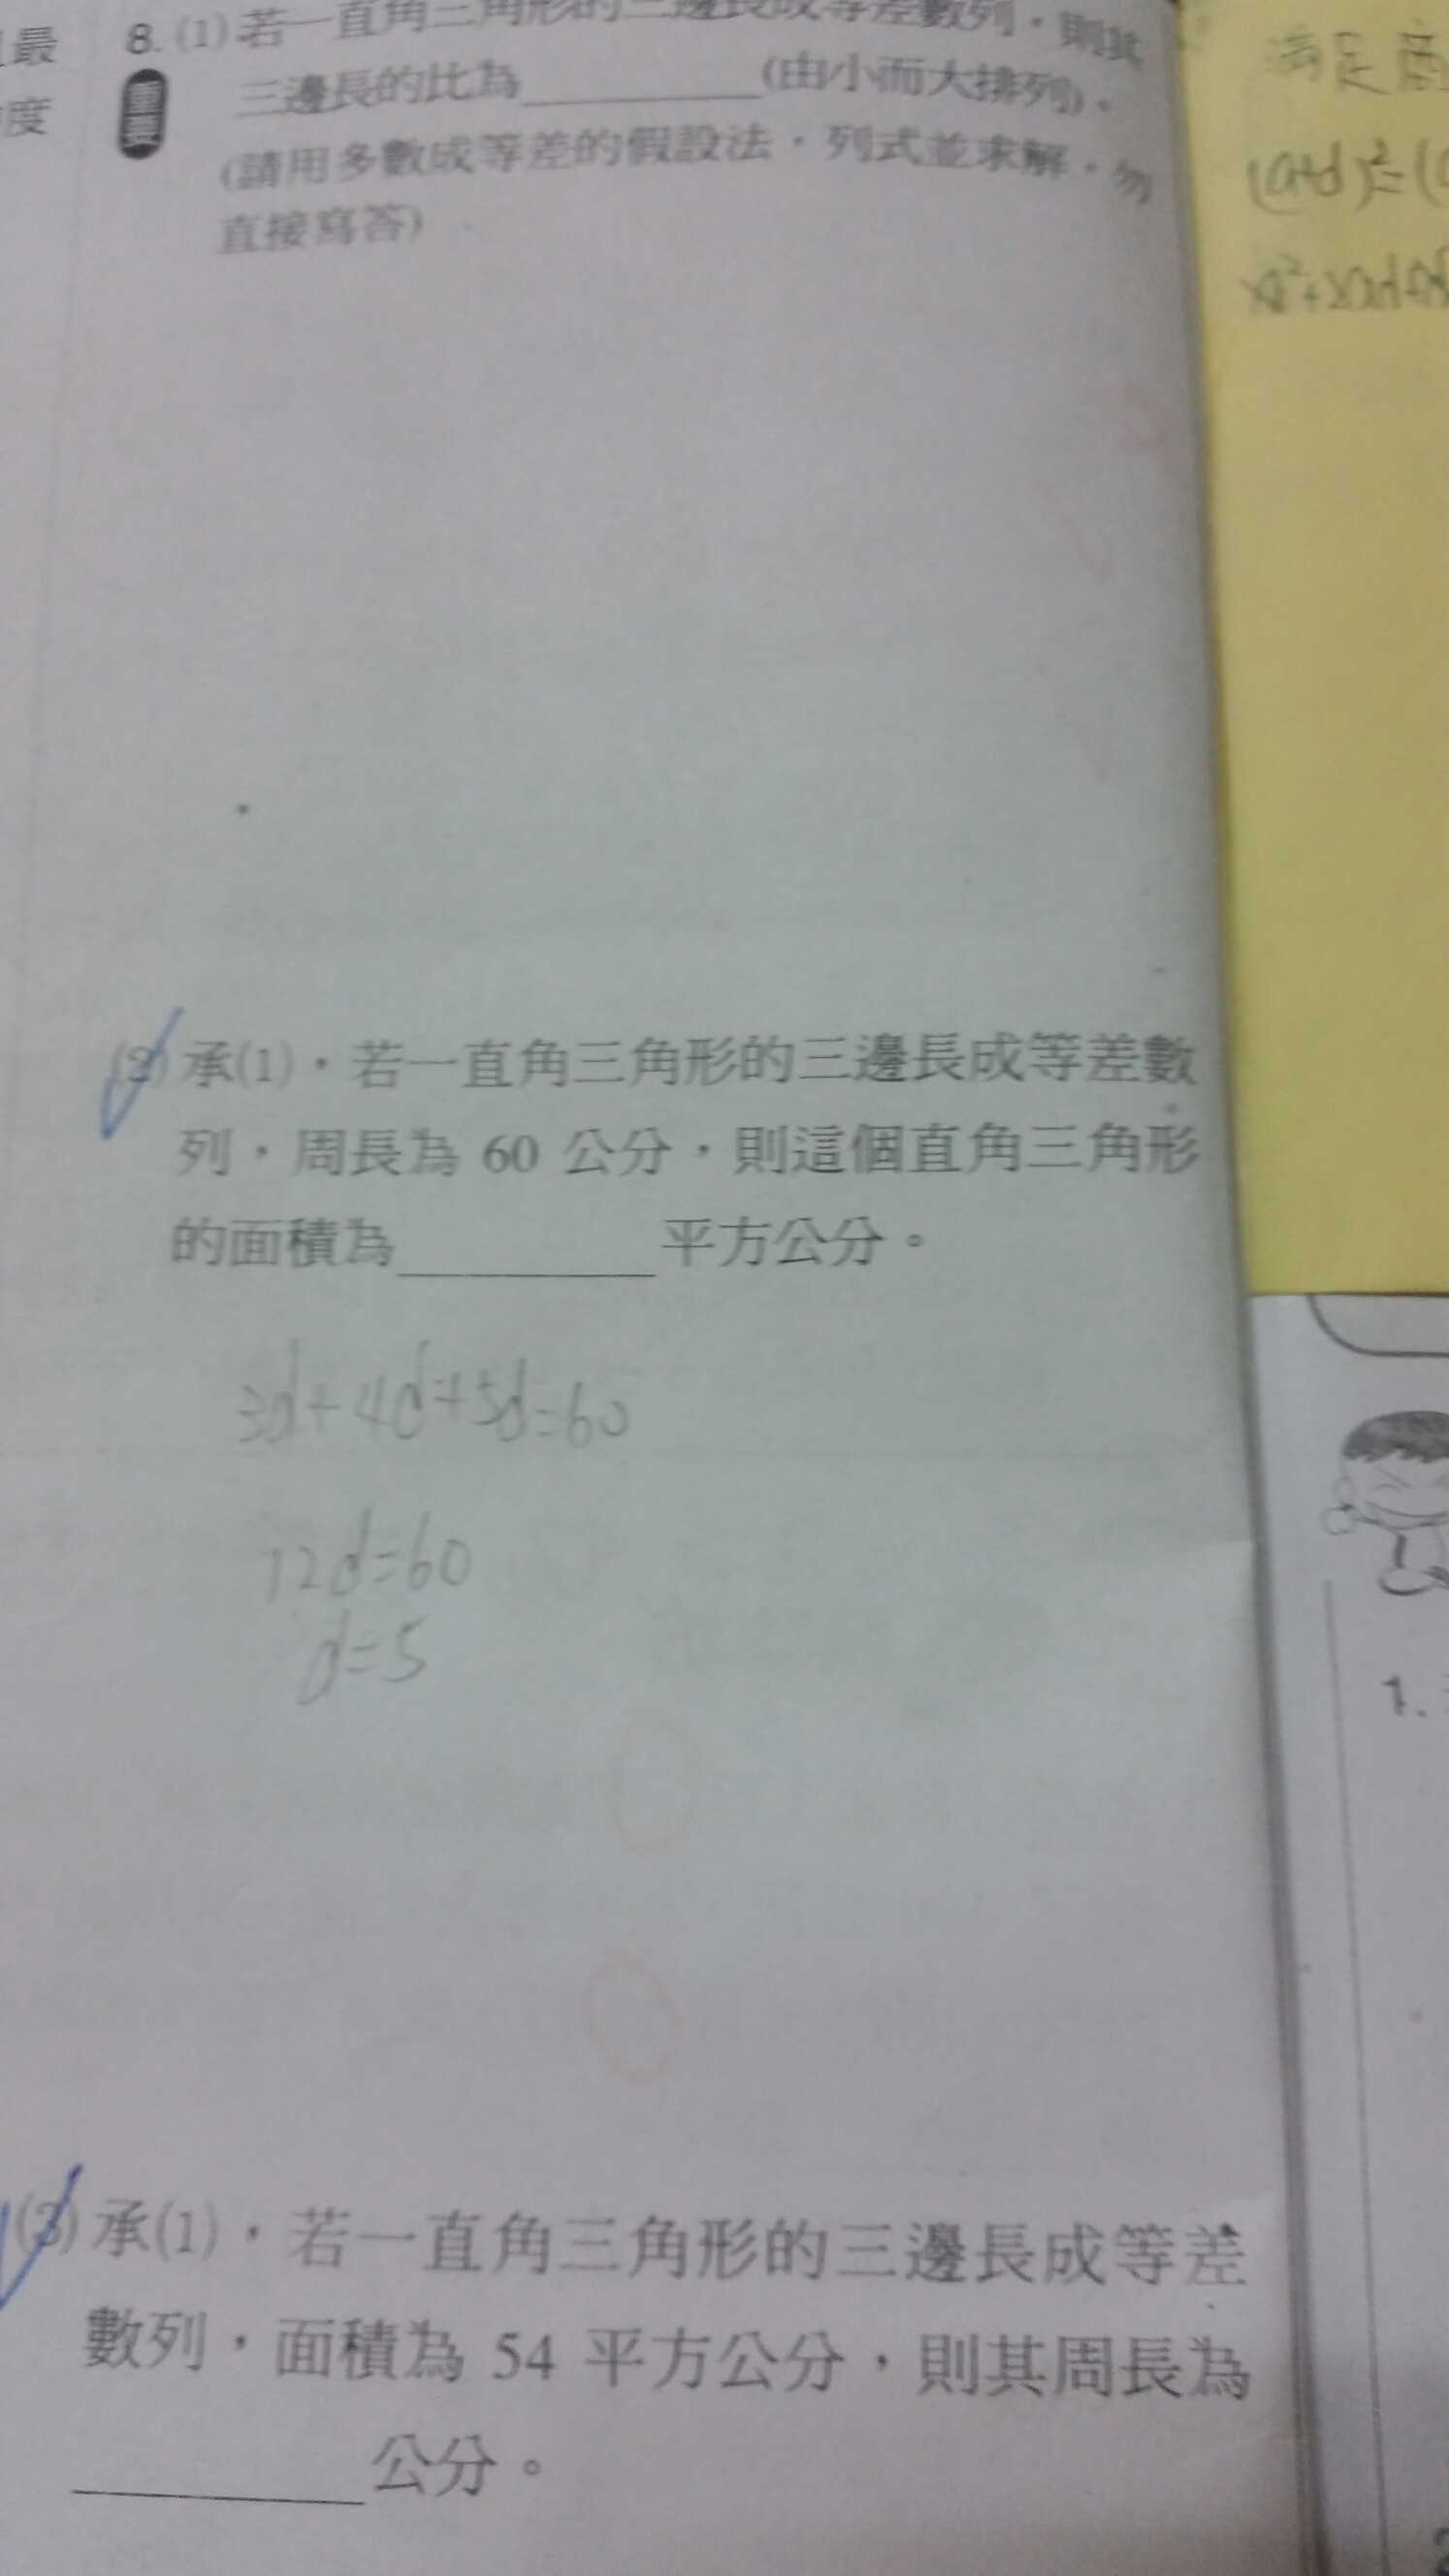 最
度
8. (1)若一直角三角形的三邊長成等差數列，則其
重要
三邊長的比為________(由小而大排列)。
(請用多數成等差的假設法，列式並求解，勿
直接寫答)
滿足
(a+d)²=(
(2)承(1)，若一直角三角形的三邊長成等差數
列，周長為 60 公分，則這個直角三角形
的面積為________平方公分。
3d+4d+5d=60
12d=60
d=5
1.
(3)承(1)，若一直角三角形的三邊長成等差
數列，面積為 54 平方公分，則其周長為
________公分。